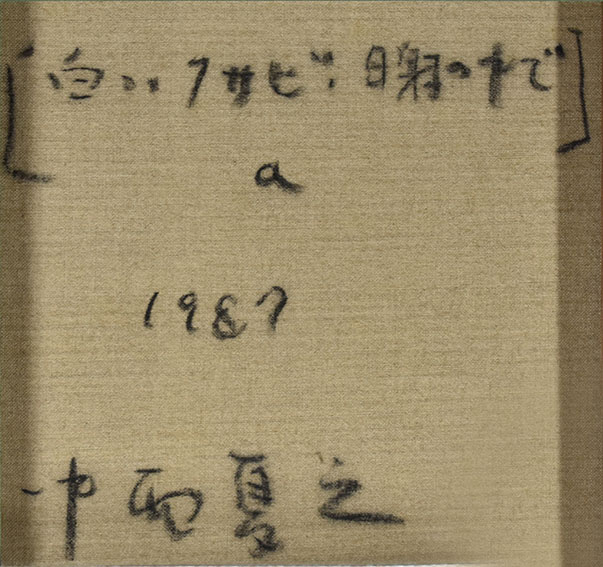 [白い クサビ. 日翳の中で]
a
1987
中西夏之